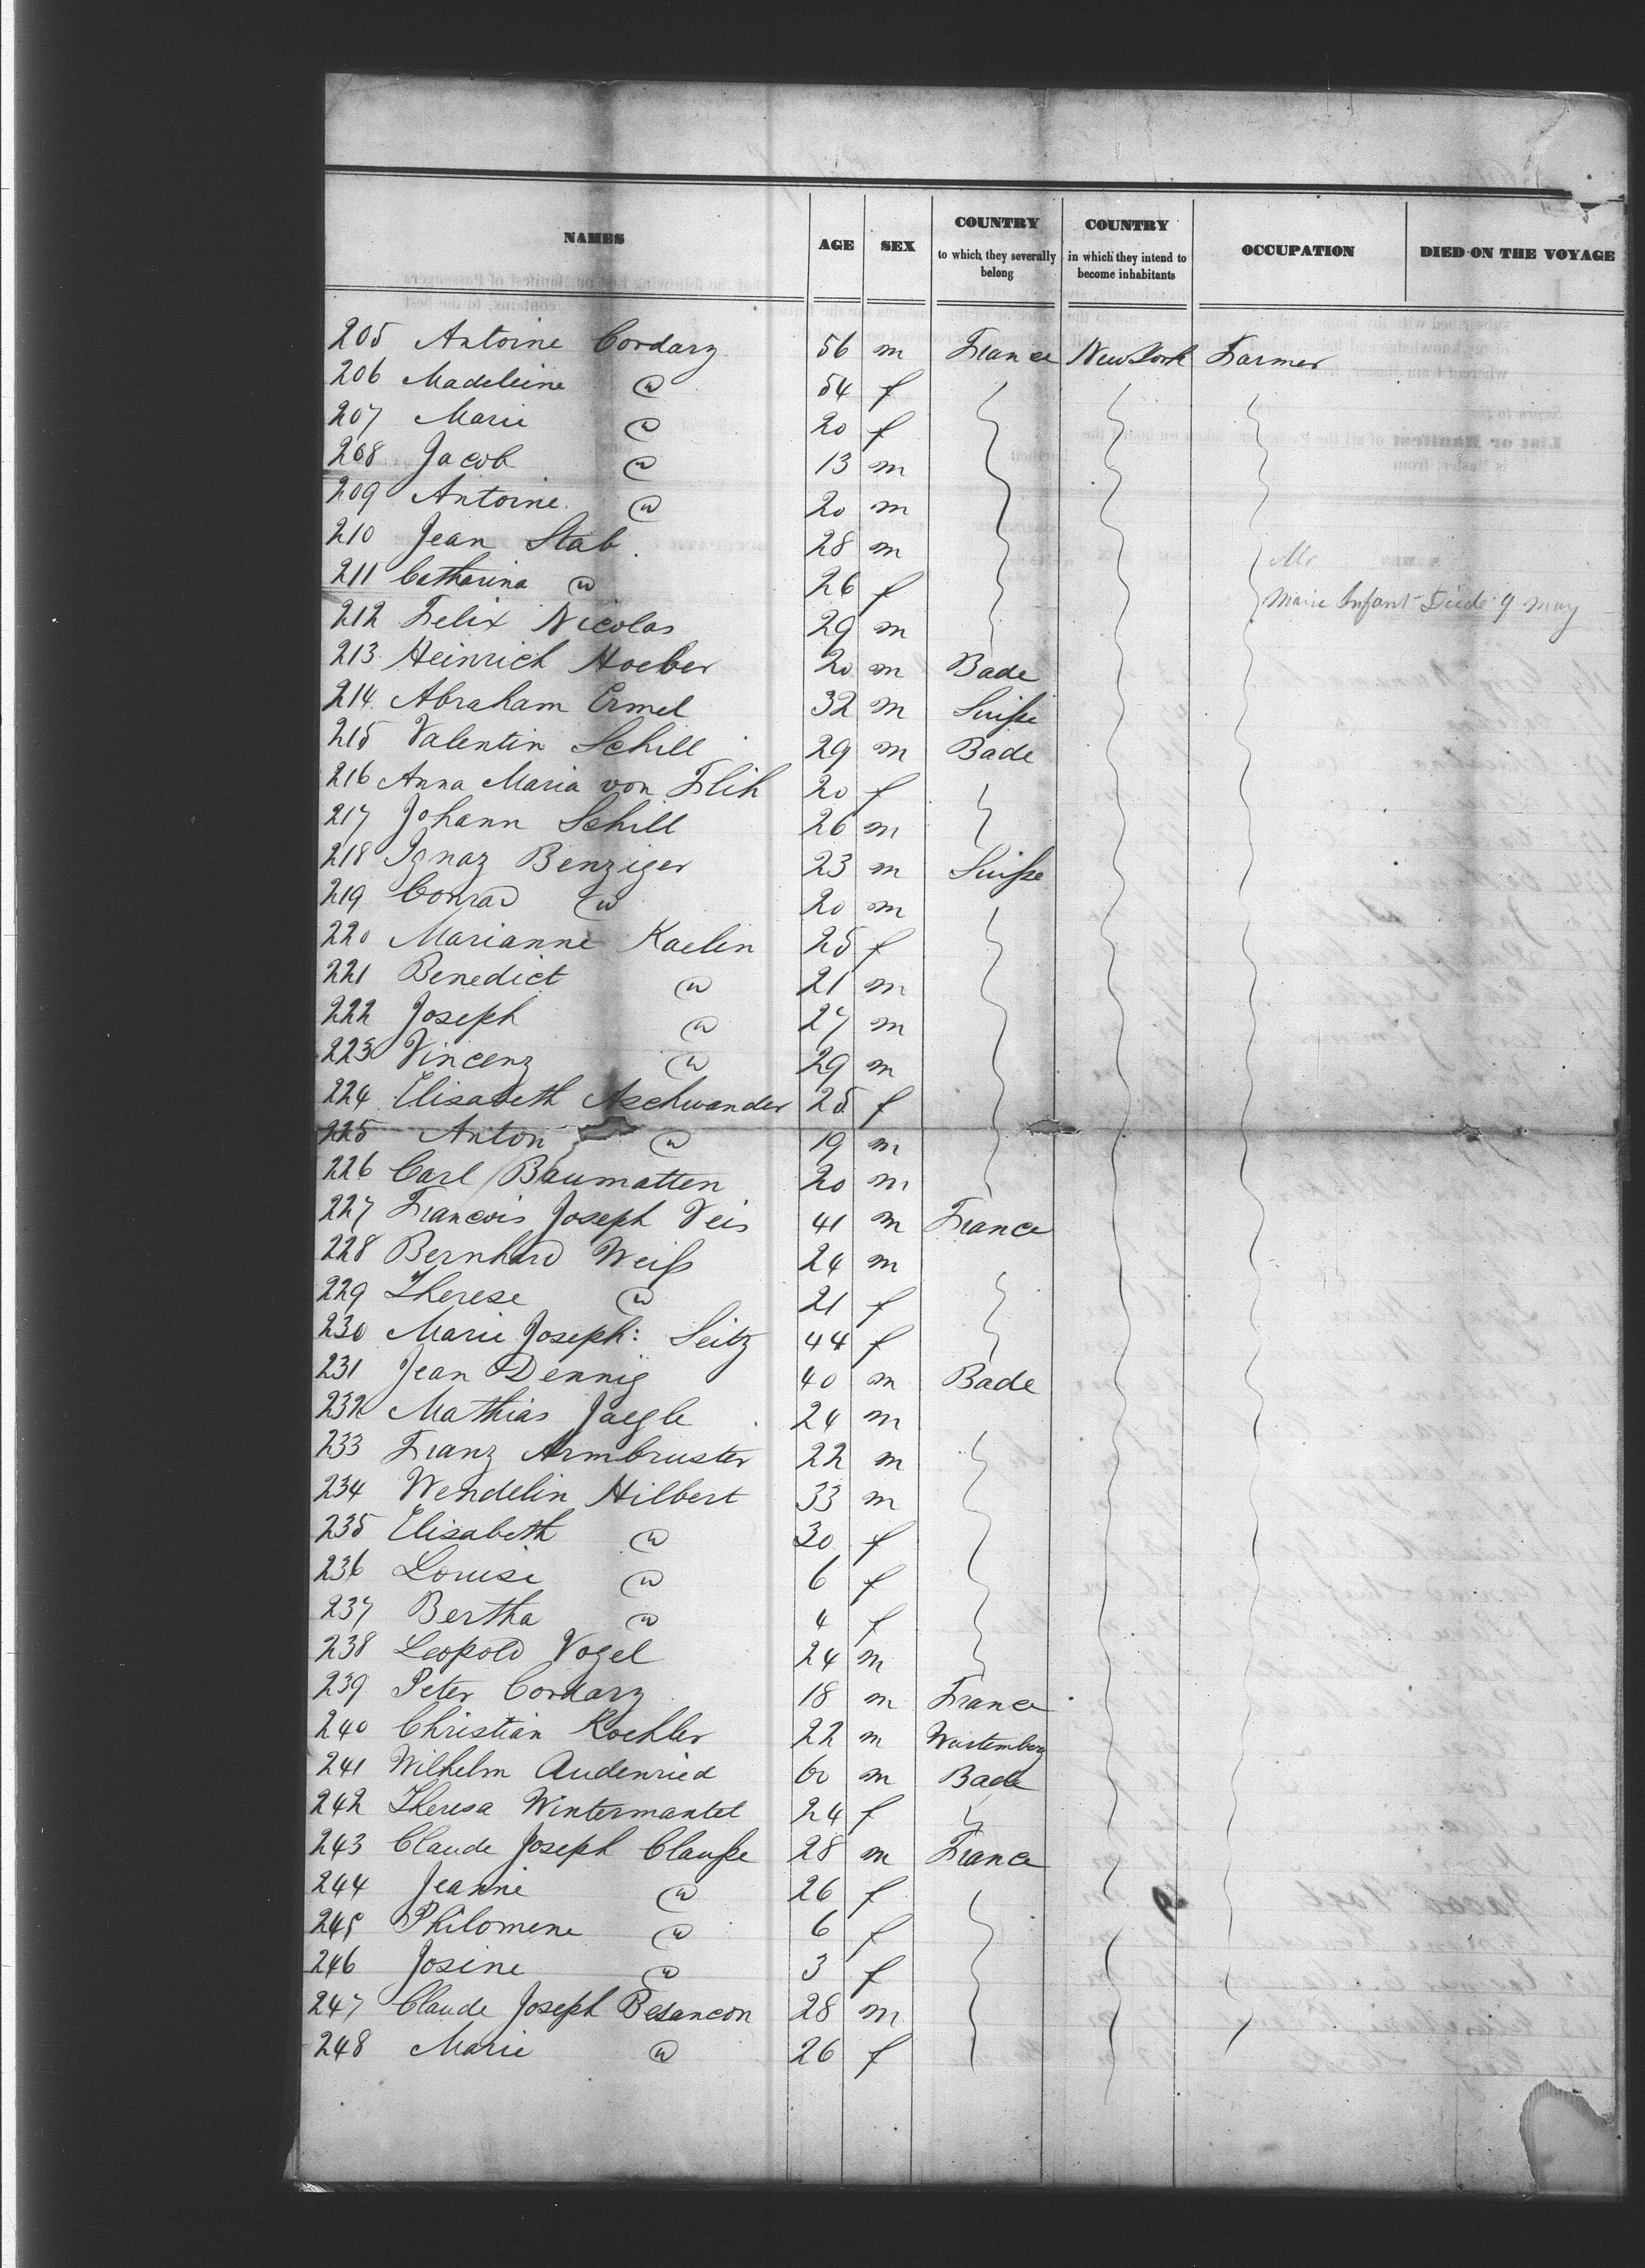 NAMES AGE SEX COUNTRY to which they severally belong COUNTRY in which they intend to become inhabitants OCCUPATION DIED ON THE VOYAGE
205 Antoine Cordary 56 m France New York Farmer
206 Madeleine @ 54 f
207 Marie @ 20 f
208 Jacob @ 13 m
209 Antoine @ 20 m
210 Jean Stab 28 m
211 Catharina @ 26 f Marie Infant Died 9 May
212 Felix Nicolas 29 m
213 Heinrich Hoeber 20 m Bade
214 Abraham Ermel 32 m Suisse
215 Valentin Schill 29 m Bade
216 Anna Maria von Flih 20 f
217 Johann Schill 26 m
218 Ignaz Benziger 23 m Suisse
219 Conrad @ 20 m
220 Marianne Kaelin 25 f
221 Benedict @ 21 m
222 Joseph @ 27 m
223 Vincenz @ 29 m
224 Elisabeth Aschwander 25 f
225 Anton @ 19 m
226 Carl Baumatten 20 m
227 Francois Joseph Veis 41 m France
228 Bernhard Weiss 24 m
229 Therese @ 21 f
230 Marie Joseph: Seitz 44 f
231 Jean Dennig 40 m Bade
232 Mathias Jaegle 24 m
233 Franz Armbruster 22 m
234 Wendelin Hilbert 33 m
235 Elisabeth @ 30 f
236 Louise @ 6 f
237 Bertha @ 4 f
238 Leopold Vogel 24 m
239 Peter Cordary 18 m France
240 Christian Koehler 22 m Wurtemberg
241 Wilhelm Audenried 60 m Bade
242 Theresa Wintermantel 24 f
243 Claude Joseph Clausse 28 m France
244 Jeanne @ 26 f
245 Philomene @ 6 f
246 Josine @ 3 f
247 Claude Joseph Besancon 28 m
248 Marie @ 26 f